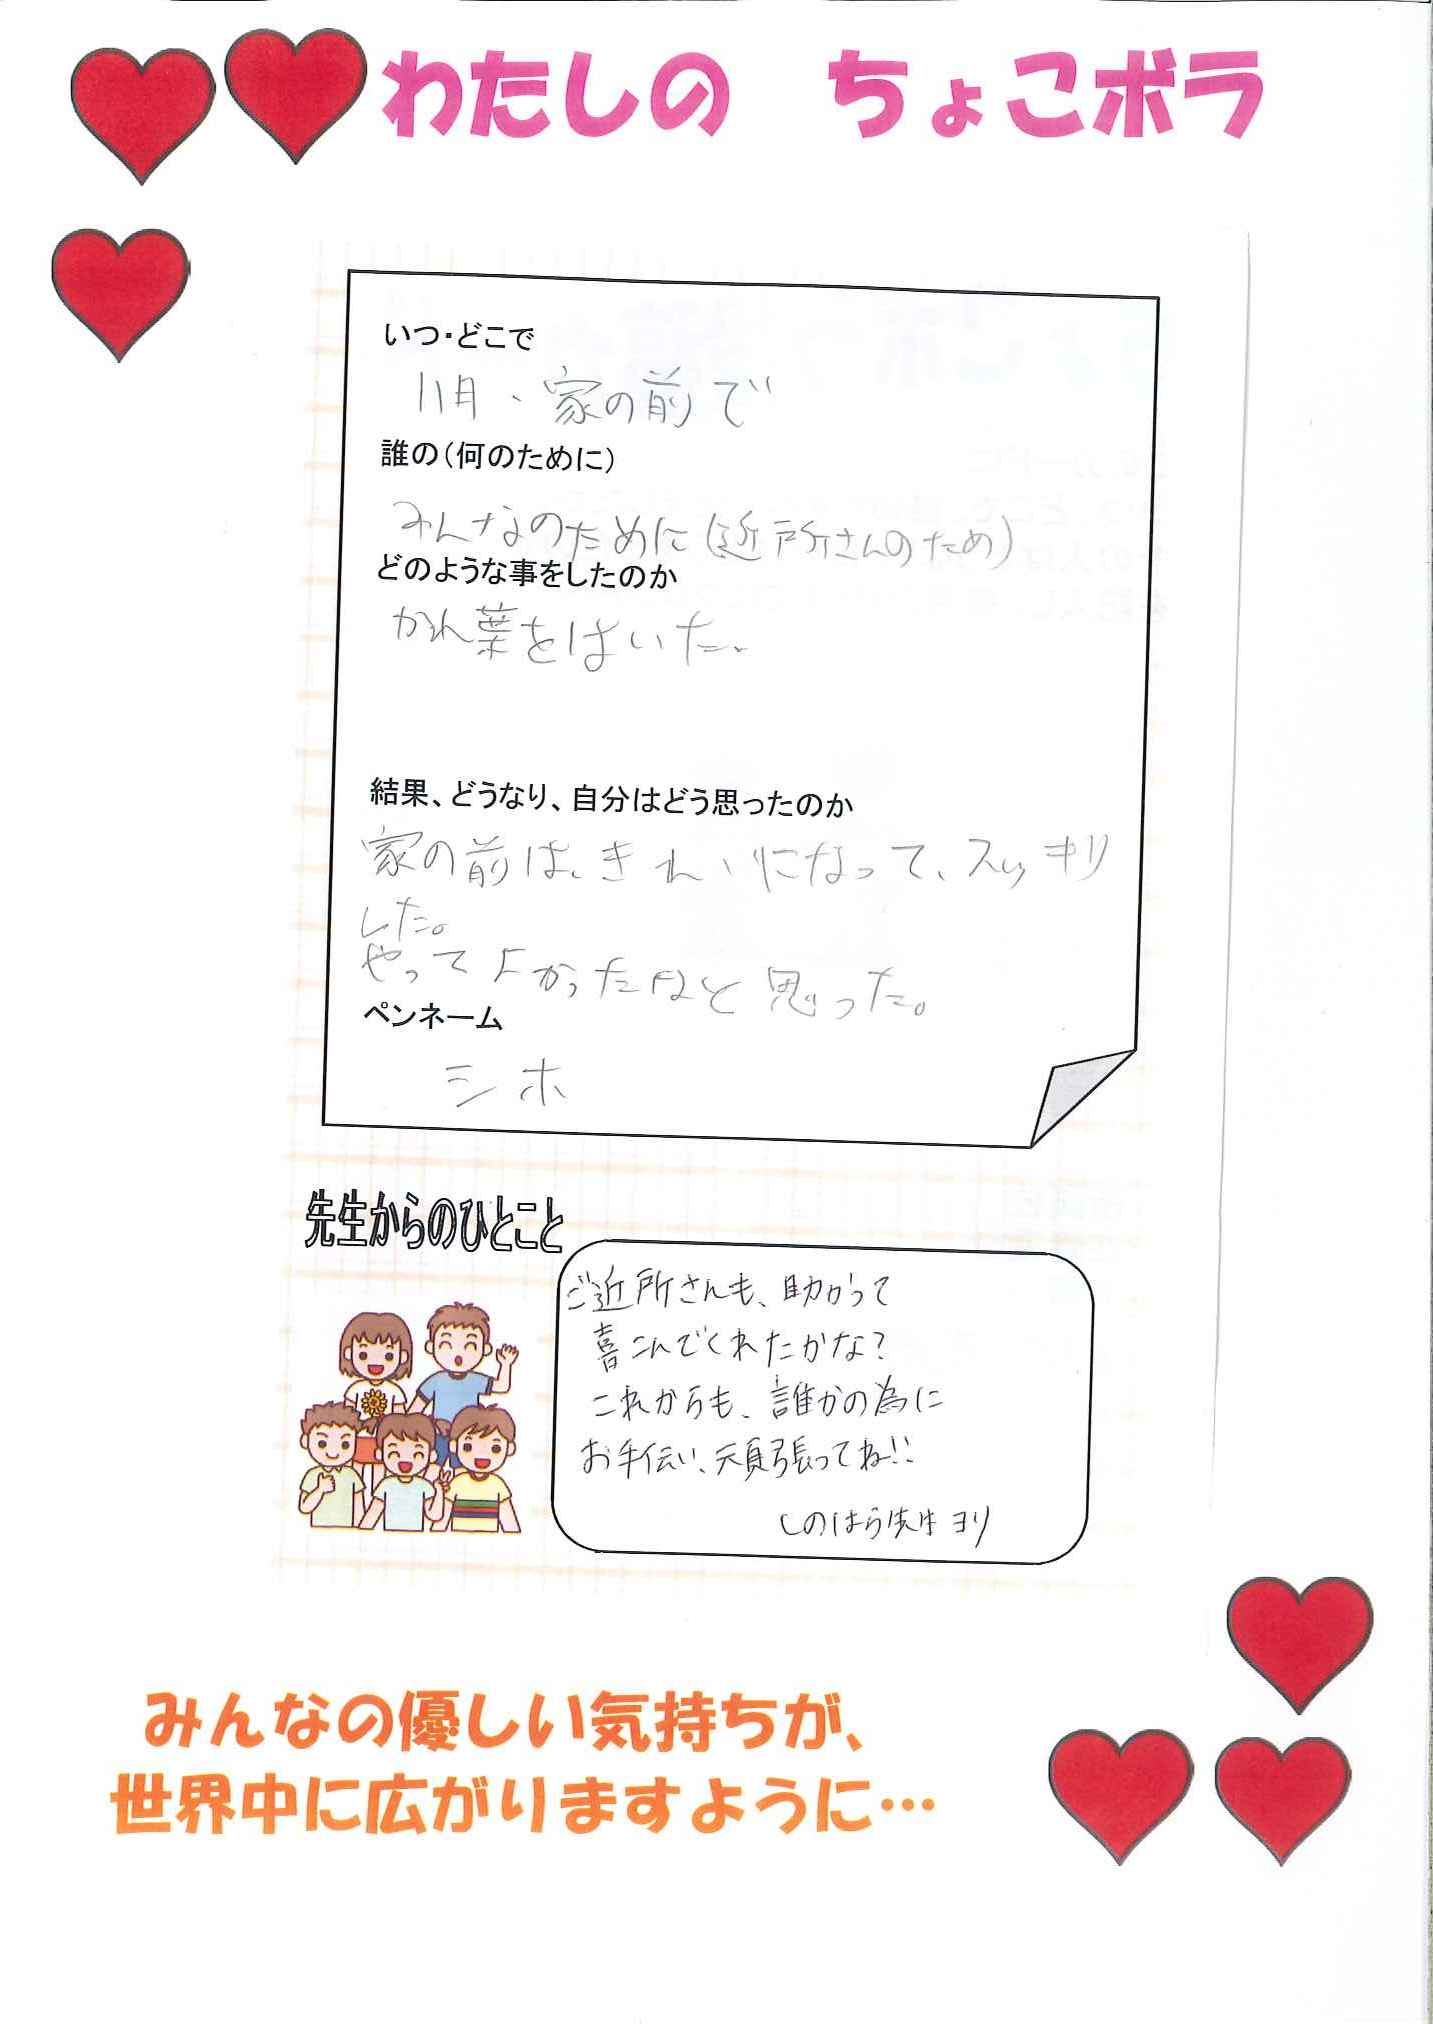 わたしの　ちょこボラ
いつ・どこで
11月、家の前で
誰の（何のために）
みんなのために（近所さんのため）
どのような事をしたのか
かれ葉をはいた。
結果、どうなり、自分はどう思ったのか
家の前は、きれいになって、スッキリ
した。
やってよかったなと思った。
ペンネーム
シホ
先生からのひとこと
ご近所さんも、助かって
喜こんでくれたかな？
これからも、誰かの為に
お手伝い、頑張ってね!!
しのはら先生ヨリ
みんなの優しい気持ちが、
世界中に広がりますように…